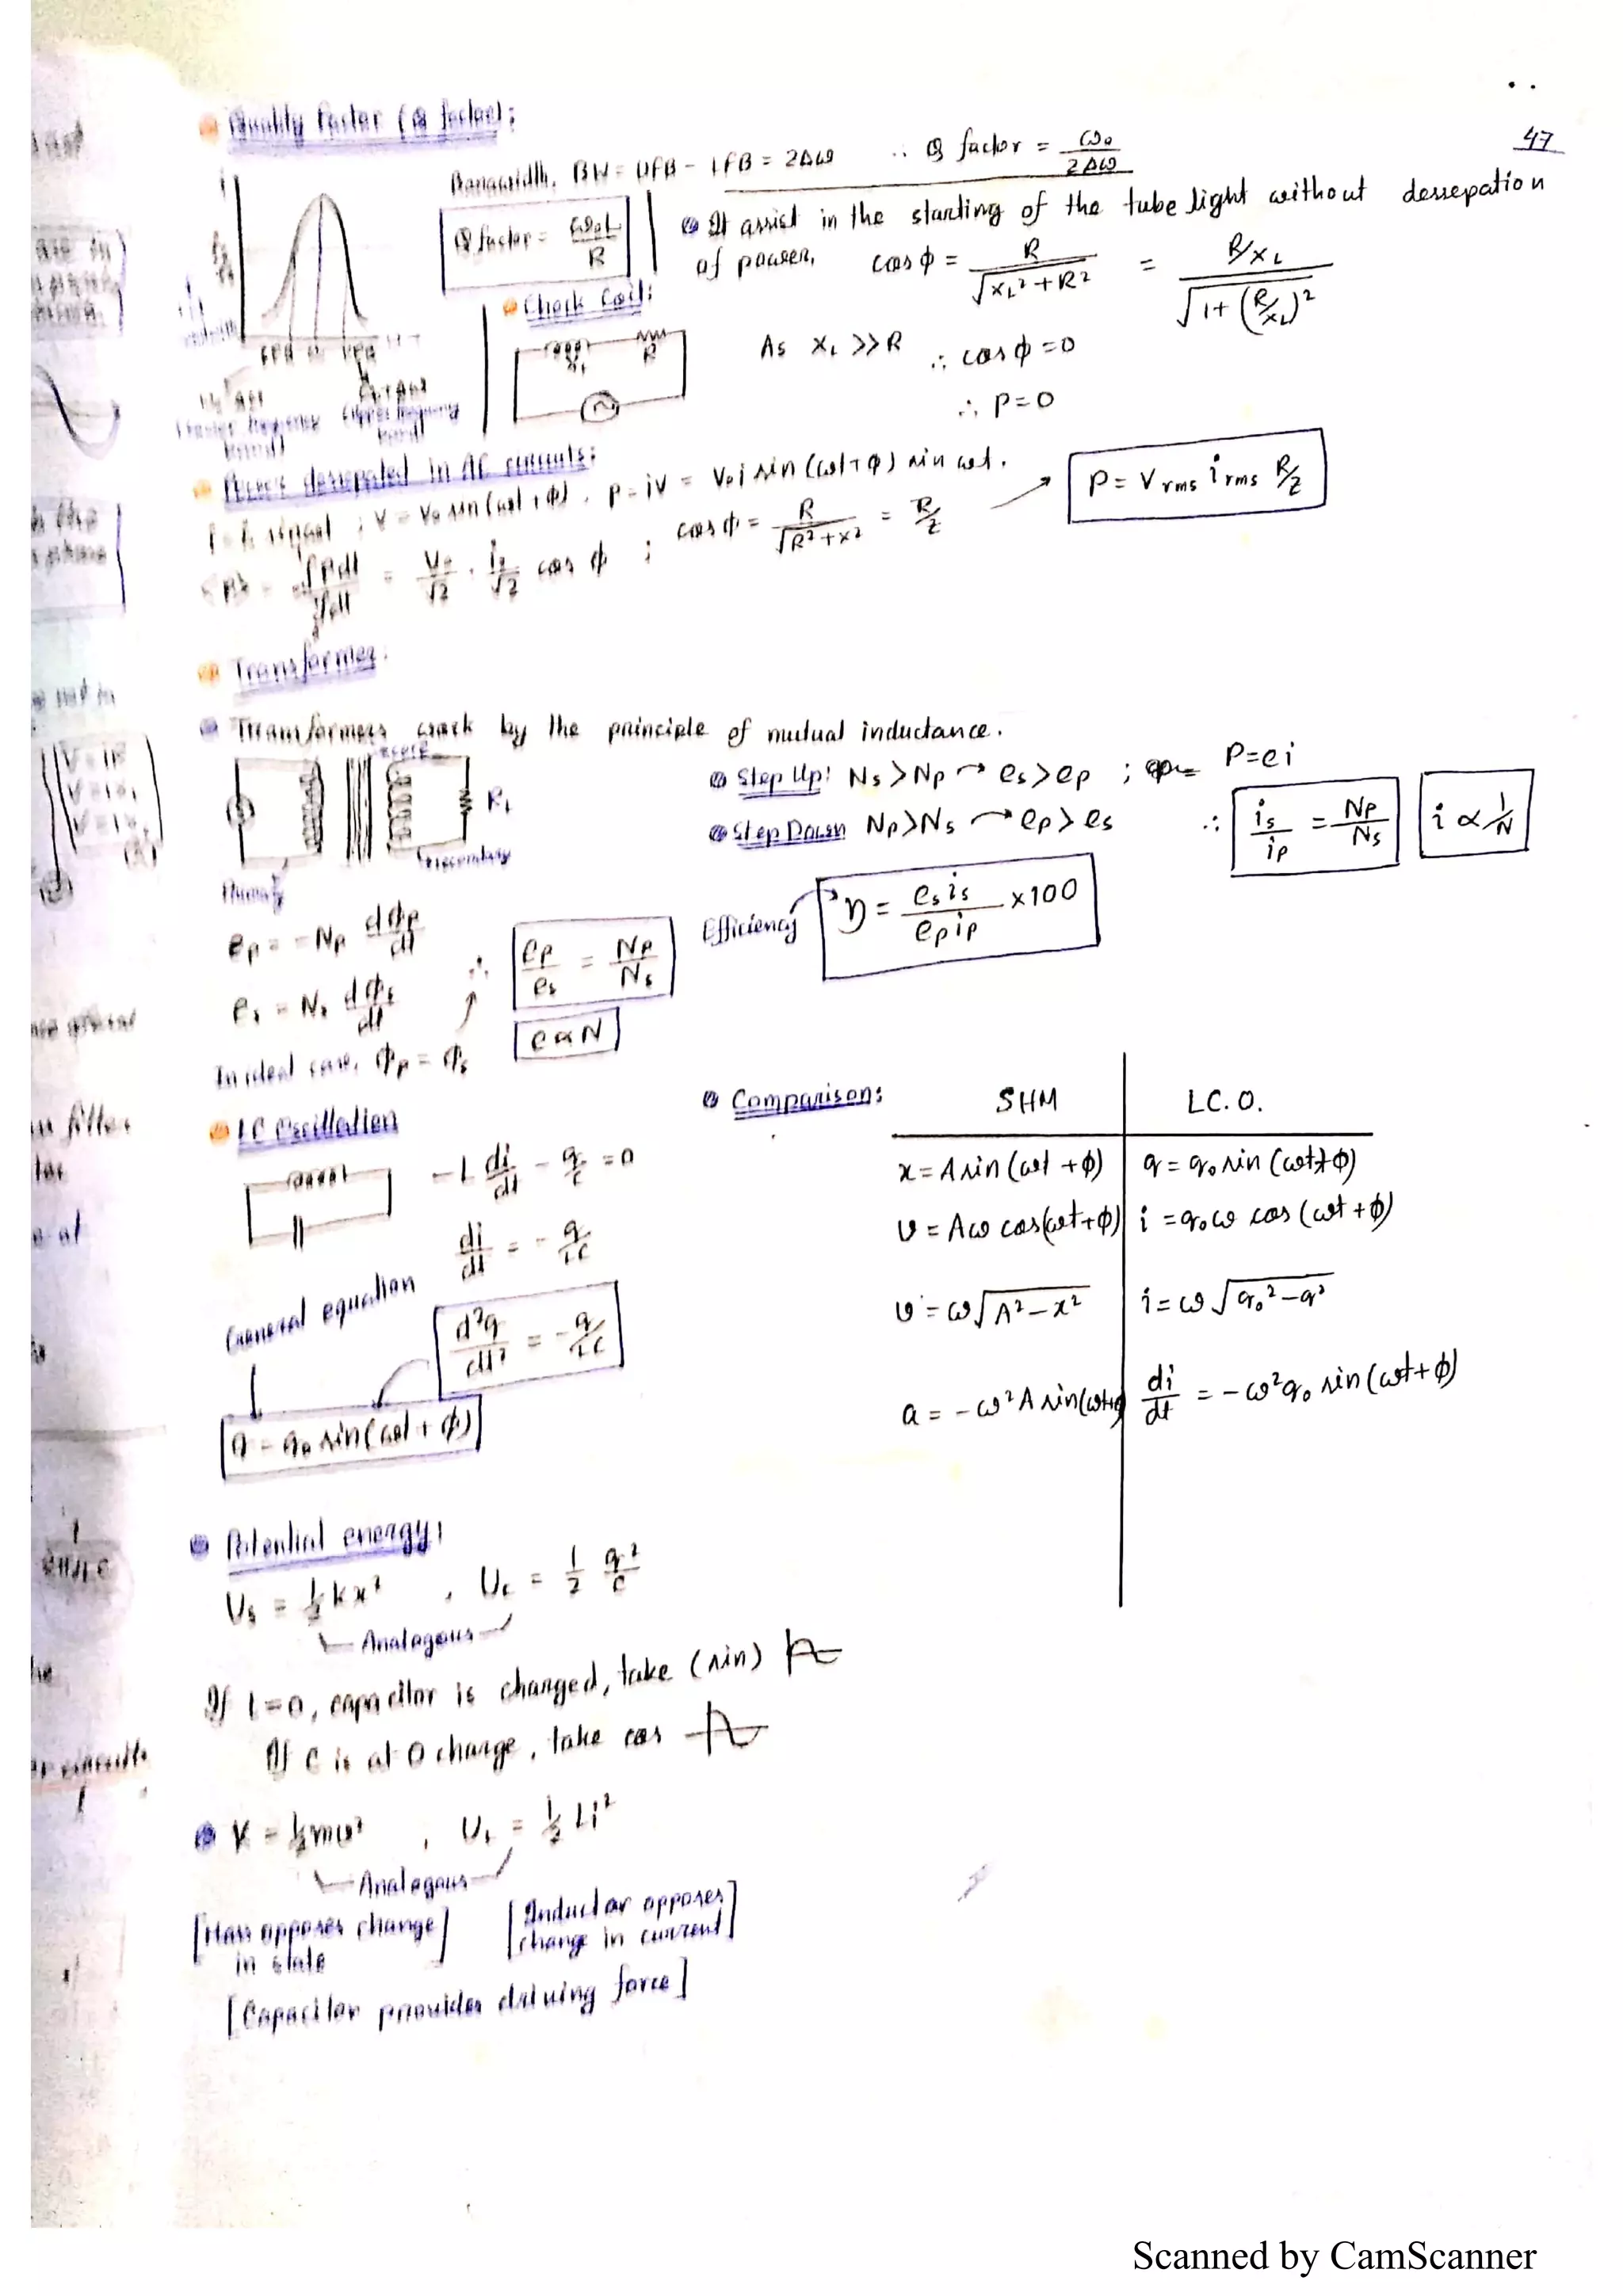 47
Quality Factor (Q factor):
Bandwidth, BW = UFB - LFB = 2Δω ∴ Q factor = ω₀/2Δω
Q factor = ω₀L/R
It assist in the starting of the tube light without dessepation
of power, cos φ = R/√(X_L² + R²) = (R/X_L)/√(1+(R/X_L)²)
Chock Coil:
R
As X_L >> R ∴ cos φ = 0
∴ P = 0
LFB ω₀ UFB
Power dessepated in AC circuits:
i = i₀ sin ωt ; V = V₀ sin (ωt + φ), P = iV = V₀ i sin (ωt + φ) sin ωt.
<P> = ∫Pdt/∫dt = V₀/√2 . i₀/√2 cos φ ; cos φ = R/√(R²+X²) = R/Z
P = V rms i rms R/Z
Transformer:
Transformers work by the principle of mutual inductance.
Step Up: Ns > Np → es > ep ; P = ei
Step Down Np > Ns → ep > es ∴ is/ip = Np/Ns i ∝ 1/N
R_L
Secondary
Primary
Efficiency η = es is/ep ip × 100
ep = -Np dφp/dt
∴ ep/es = Np/Ns
es = Ns dφs/dt
e ∝ N
In ideal case, φp = φs
LC Oscillation
-L di/dt - q/C = 0
di/dt = - q/LC
General equation
d²q/dt² = - q/LC
q = q₀ sin(ωt + φ)
Comparison:
SHM LC.O.
x = A sin (ωt + φ) q = q₀ sin (ωt + φ)
v = Aω cos(ωt + φ) i = q₀ω cos (ωt + φ)
v = ω√(A² - x²) i = ω√(q₀² - q²)
a = -ω²A sin(ωt+φ) di/dt = -ω²q₀ sin (ωt + φ)
Potential energy:
Us = ½kx² , Uc = 1/2 q²/C
Analogous
If t=0, capacitor is changed, take (sin)
If C is at 0 change, take cos
K = ½mv² , U_L = ½ Li²
Analogous
[Mass opposes change in state] [Inductor opposes change in current]
[Capacitor provides driving force]
Scanned by CamScanner